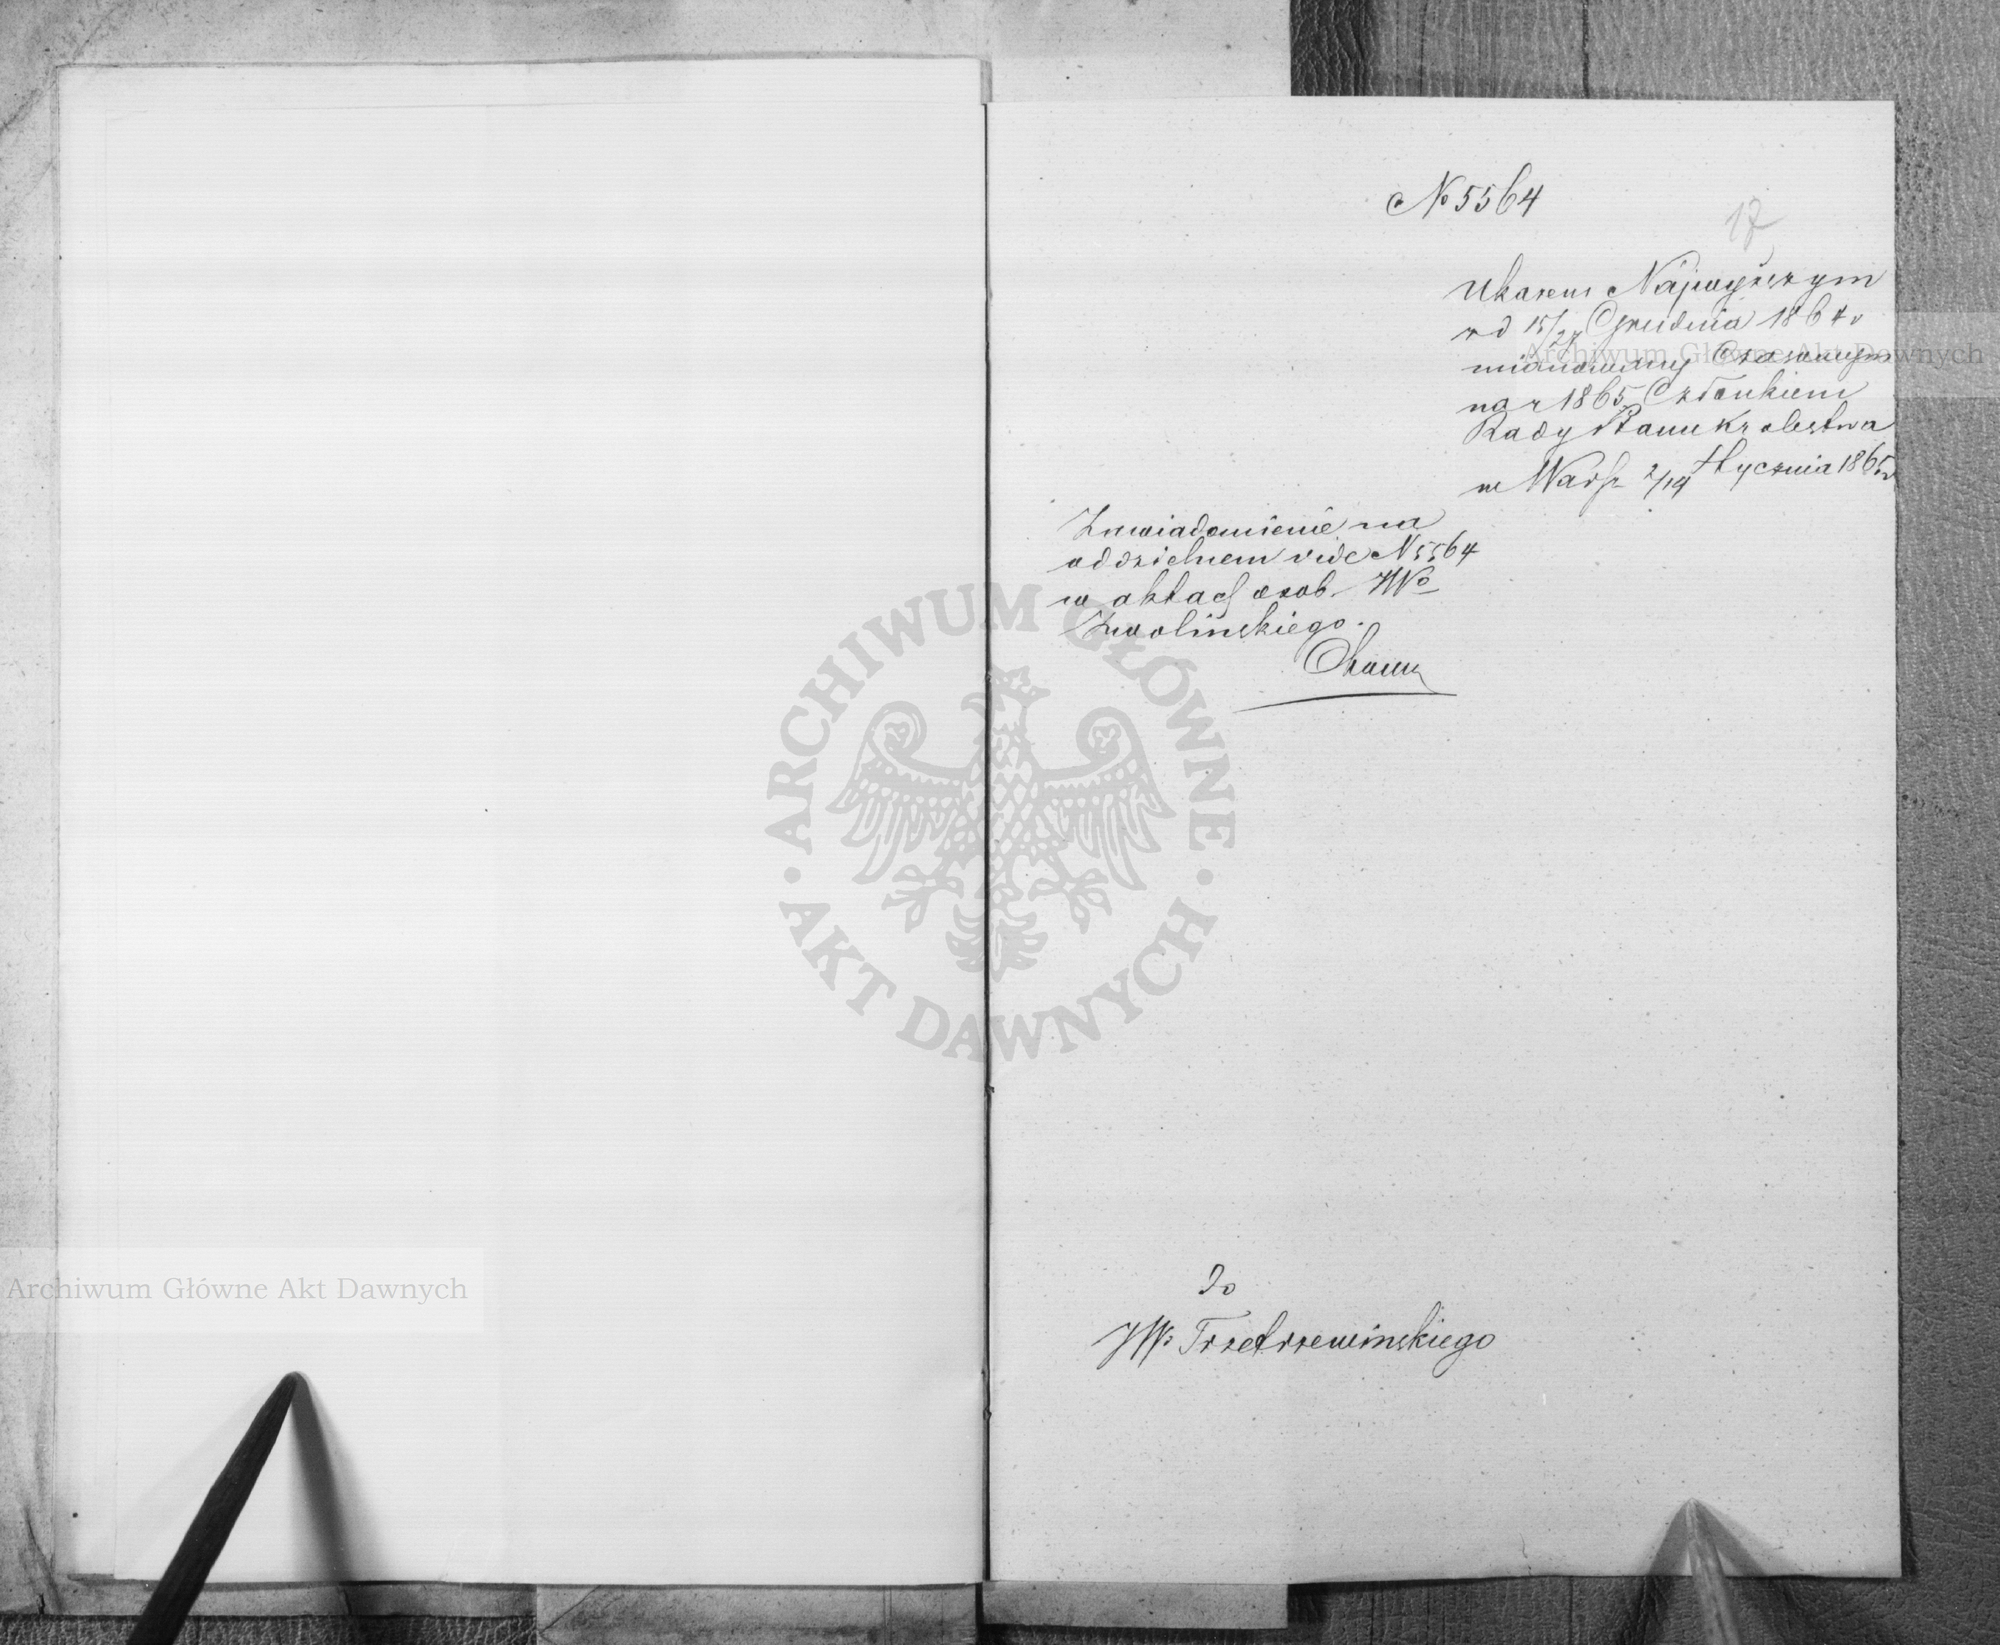 № 5564
17
Ukazem Najwyższym
od 15/27 Grudnia 1864 r
mianowany Czasowym
na r 1865 Członkiem
Rady Stanu Królestwa
w Warsz 2/14 Stycznia 1865 r
Zawiadomienie na
oddzielnem vide N 5564
w aktach osob. JWo
Zwolińskiego.
do
JWo Trzetrzewińskiego
ARCHIWUM GŁÓWNE
AKT DAWNYCH
Archiwum Główne Akt Dawnych
Archiwum Główne Akt Dawnych